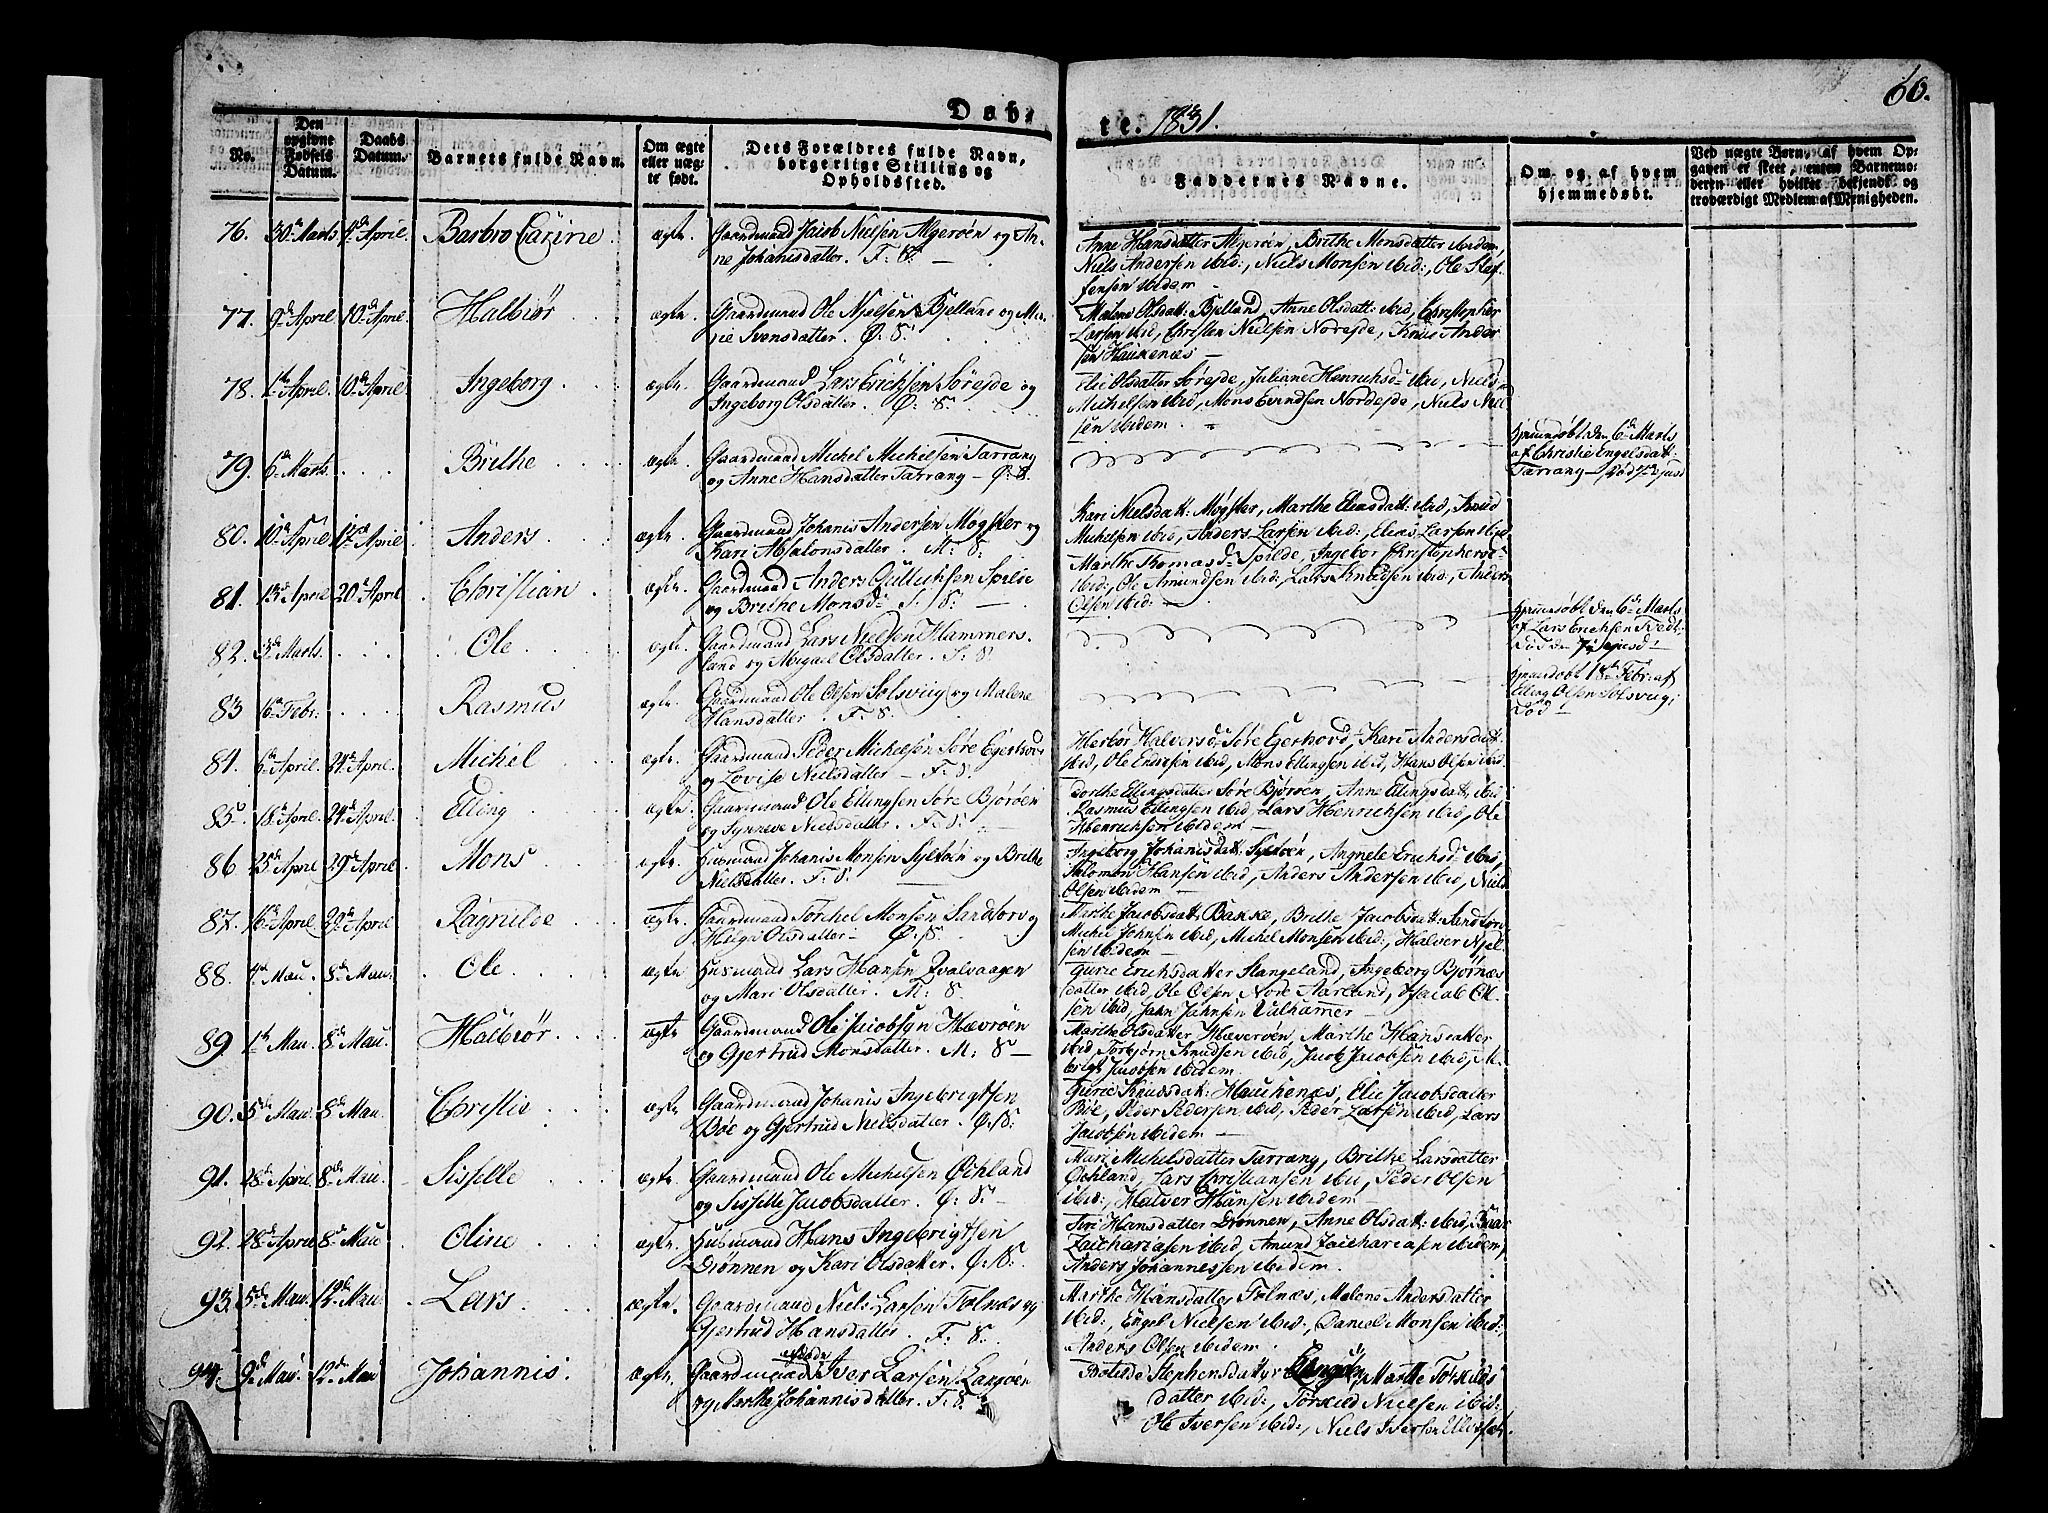 Døb-
te. 1831.
60.
No.
Den
opgivne
Fødsels
Datum.
Daabs
Datum.
Barnets fulde Navn.
Om ægte
eller uæg-
te født.
Dets Forældres fulde Navn,
borgerlige Stilling og
Opholdssted.
Faddernes Navne.
Om, og af hvem
hjemmedøbt.
Ved uægte Børn, af hvem Op-
gaven er skeet, enten Barnemo-
deren eller hvilket bekjendt og
troværdigt Medlem af Menigheden.
76. 30te Marts 4de April. Barbro Carine. ægte. Gaardmand Jacob Nielsen Algerøen og An-
ne Johanisdatter. F: S:
Anne Hansdatter Algerøen, Brithe Monsdatter ibidem,
Niels Andersen ibid:, Niels Monsen ibid:, Ole Stef-
fensen ibidem
77. 9de April 10de April. Halbiør ægte. Gaardmand Ole Njelsen Bjelland og Ma-
rie Svensdatter. Ø: S:
Malene Olsdatt: Bjelland, Anne Olsdatt: ibid, Christopher
Larsen ibid, Christen Nielsen Noreide, Knud Ander-
sen Haukenæs
78. 1te April. 10de April Ingeborg. ægte. Gaardmand Lars Erichsen Søreide og
Ingeborg Olsdatter. Ø: S:
Elie Olsdatter Søreide, Juliane Henrichsdr ibid, Niels
Michelsen ibid, Mons Evindsen Nordeide, Niels Niel-
sen ibidem.
79. 6te Marts. Brithe ægte. Gaardmand Michel Michelsen Tarrang
og Anne Hansdatter Tarrang Ø: S.
hjemmedøbt den 6te Marts
af Christie Engelsdatt:
Tarrang
80. 10de April 17de April Anders ægte. Gaardmand Johanis Andersen Møgster og
Kari Malonsdatter. M: S:
Kari Nielsdatt: Møgster, Marthe Eliasdatt: ibid, Knud
Michelsen ibid, Anders Larsen ibid:, Elias Larsen ibid,
81. 13de April 20de April Christian ægte. Gaardmand Anders Gullichsen Spilde
og Brithe Monsdr S: S:
Marthe Thomasdr Spilde, Ingebor Christophersdr
ibid:, Ole Amundsen ibid:, Lars Knudsen ibid:, Anders
Olsen ibid:
82. 3de Marts. Ole ægte. Gaardmand Lars Nielsen Hammers-
land og Abigael Olsdatter. S: S.
hjemmedøbt den 6te Marts
af Lars Erichsen Tvedt:
83 16de Febr: Rasmus ægte. Gaardmand Ole Olsen Solsviig og Malene
Hansdatter. F: S.
hjemmedøbt 18de Febr: af
Elling Olsen Solsviig;
Død
84. 6te April. 24de April. Michel ægte. Gaardmand Peder Michelsen Søre Egerhovd
og Lovise Nielsdatter F: S.
Herbør Halversdr Søre Egerhovd, Kari Andersdatt:
ibid, Ole Endresen ibid, Mons Ellingsen ibid, Hans Olsen ibid
85. 18de April. 24de April. Elling ægte: Gaardmand Ole Ellingsen Søre Bjørøen
og Synneve Nielsdatter. F: S:
Dorthe Ellingsdatter Søre Bjørøen, Anne Ellingsdatt, ibid
Rasmus Ellingsen ibid, Lars Henrichsen ibid, Ole
Henrichsen ibidem
86. 25de April 29de April Mons ægte. Husmand Johanis Monsen Syltøen og Brithe
Nielsdatter. F: S.
Ingeborg Johanisdatt: Syltøen, Angnete Erichsdr ibid,
Salomon Hansen ibid:, Anders Andersen ibid, Niels
Olsen ibidem
87. 16de April. 29de April Ragnilde ægte. Gaardmand Torchel Monsen Sandtorv og
Helge Olsdatter Ø: S.
Marthe Jacobsdatt: Bakke, Brithe Jacobsdatt: Sandtorv
Michel Johnsen ibid, Michel Monsen ibid:, Halver Njel-
sen ibidem
88. 4de Mai. 8de Mai. Ole ægte. Husmand Lars Hansen Qvalvaagen
og Mari Olsdatter. M: S.
Gurie Erichsdatter Stangeland, Ingeborg Bjørnæs
datter ibid, Ole Olsen Nore Aarland, Jacob Ol-
sen ibid, John Johnsen Valhamer
89 1te Mai 8de Mai. Halbiør ægte Gaardmand Ole Jacobsen Hævrøen
og Gjertrud Monsdatter. M: S
Marthe Olsdatter Hæverøen, Marthe Hansdatter
ibid, Torbjørn Knudsen ibid, Jacob Jacobsen ibid,
Jacobsen ibidem.
90. 5te Mai. 8de Mai. Christie ægte Gaardmand Johanis Ingebrigtsen
Bøe og Gjertrud Nielsdatter. Ø: S:
Gurie Knudsdatt: Hauchenæs, Elie Jacobsdatter
Bøe, Peder Pedersen ibid, Peder Larsen ibid, Lars
Jacobsen ibidem
91. 28de April 8de Mai. Sisselle ægte. Gaardmand Ole Michelsen Øchland
og Sisselle Jacobsdatter. Ø: S:
Mari Michelsdatter Tarrang, Brithe Larsdatter
Øchland, Lars Christiansen ibid, Peder Olsen
ibid:, Halver Hansen ibidem
92. 28de April 8de Mai Oline ægte Husmand Hans Ingebrigtsen
Drønnen og Kari Olsdatter. Ø: S:
Siri Hansdatter Drønnen, Anne Olsdatt: ibid,
Zachariasen ibid, Amund Zachariasen ibidem,
Anders Johannessen ibidem.
93. 5te Mai. 12de Mai. Lars ægte. Gaardmand Niels Larsen Tølnæs og
Gjertrud Hansdatter. F: S.
Marthe Hansdatter Tølnæs, Malene Andersdatter
ibid:, Engel Nielsen ibid:, Daniel Monsen ibid:,
Anders Olsen ibidem
94. 9de Mai. 12de Mai Johannis. ægte. Gaardmand Iver Larsen Langøen
og Marthe Johannisdatter. F: S.
Botilde Stephensdatter Langøen, Marthe Torkilds-
datter ibid:, Torkild Nielsen ibid:
Ole Iversen ibid:, Niels Iversen